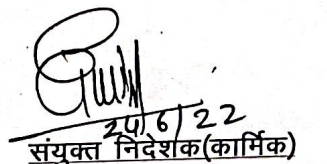 24/6/22
संयुक्त निदेशक(कार्मिक)